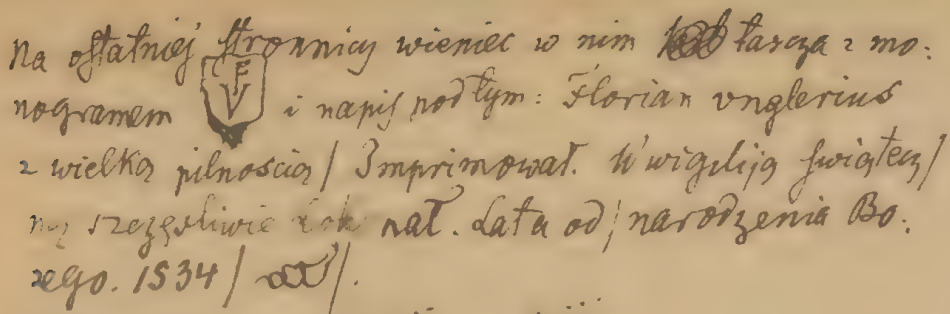 Na ostatniej stronnicy wieniec w nim tarcza z mo:
nogramem FV i napis pod tym: Florian vnglerius
z wielką pilnością / Imprimował. W wigiliją świątecz /
ną szczęśliwie Dokonał. Lata od / narodzenia Bo:
żego. 1534 /